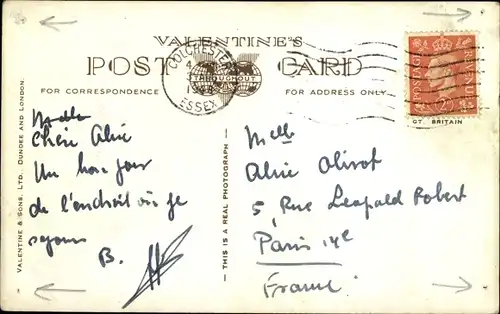 VALENTINE'S
POST CARD
FOR CORRESPONDENCE
FOR ADDRESS ONLY
COLCHESTER
ESSEX
THROUGHOUT
POSTAGE
GT. BRITAIN
VALENTINE & SONS, LTD. DUNDEE AND LONDON.
THIS IS A REAL PHOTOGRAPH
Chère Alice
Un bonjour
de l'endroit où je
séjourne
B.
Melle
Alice Olivot
5, Rue Leopold Robert
Paris 14e
France